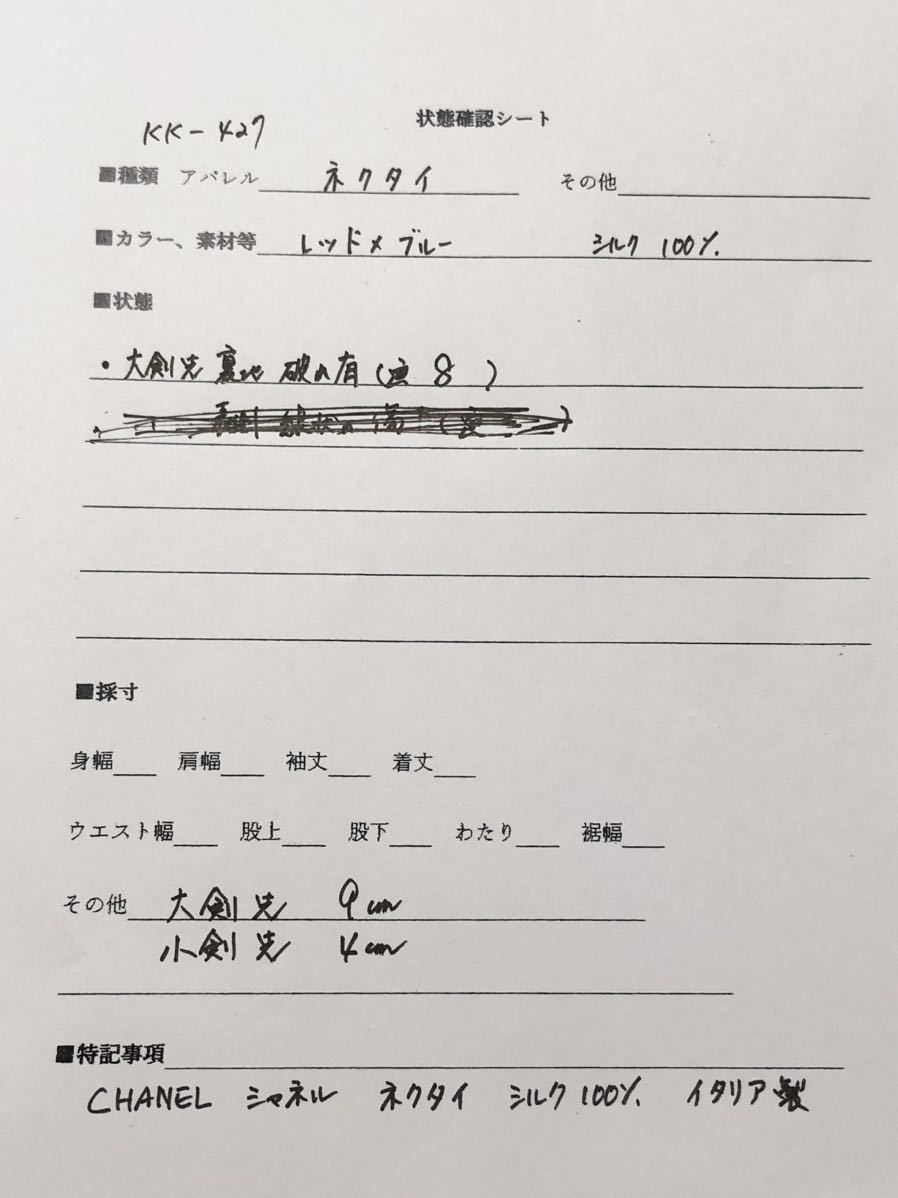 状態確認シート
KK-427
■種類 アパレル ネクタイ その他
■カラー、素材等 レッド×ブルー シルク 100%.
■状態
・大剣先 裏地 破れ有(画 8 )
■採寸
身幅 肩幅 袖丈 着丈
ウエスト幅 股上 股下 わたり 裾幅
その他 大剣先 9cm
小剣先 4cm
■特記事項
CHANEL シャネル ネクタイ シルク100%. イタリア製